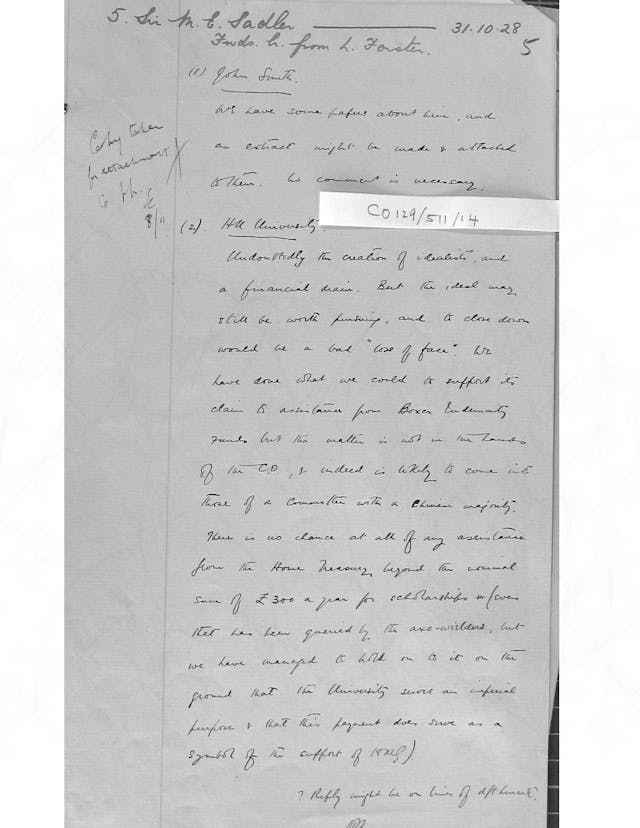 5. Sir M. E. Sadler 31.10.28
5
Fwds. l. from L. Forster.
(1) John Smith.
We have some papers about him, and
an extract might be made & attached
to them. No comment is necessary.
Copy taken
for attachment
to
8/11
CO129/511/14
(2). HK University.
Undoubtedly the creation of idealists, and
a financial drain. But the ideal may
still be worth pursuing, and to close down
would be a bad "loss of face". We
have done what we could to support its
claim to assistance from Boxer Indemnity
Funds but the matter is not in the hands
of the C.O., & indeed is likely to come into
those of a committee with a Chinese majority.
There is no chance at all of any assistance
from the Home Treasury beyond the nominal
sum of £300 a year for scholarships (even
that has been queried by the axe-wielders, but
we have managed to hold on to it on the
ground that the University serves an imperial
purpose & that this payment does serve as a
symbol of the support of HMG).
? Reply might be on lines of dft herewith.